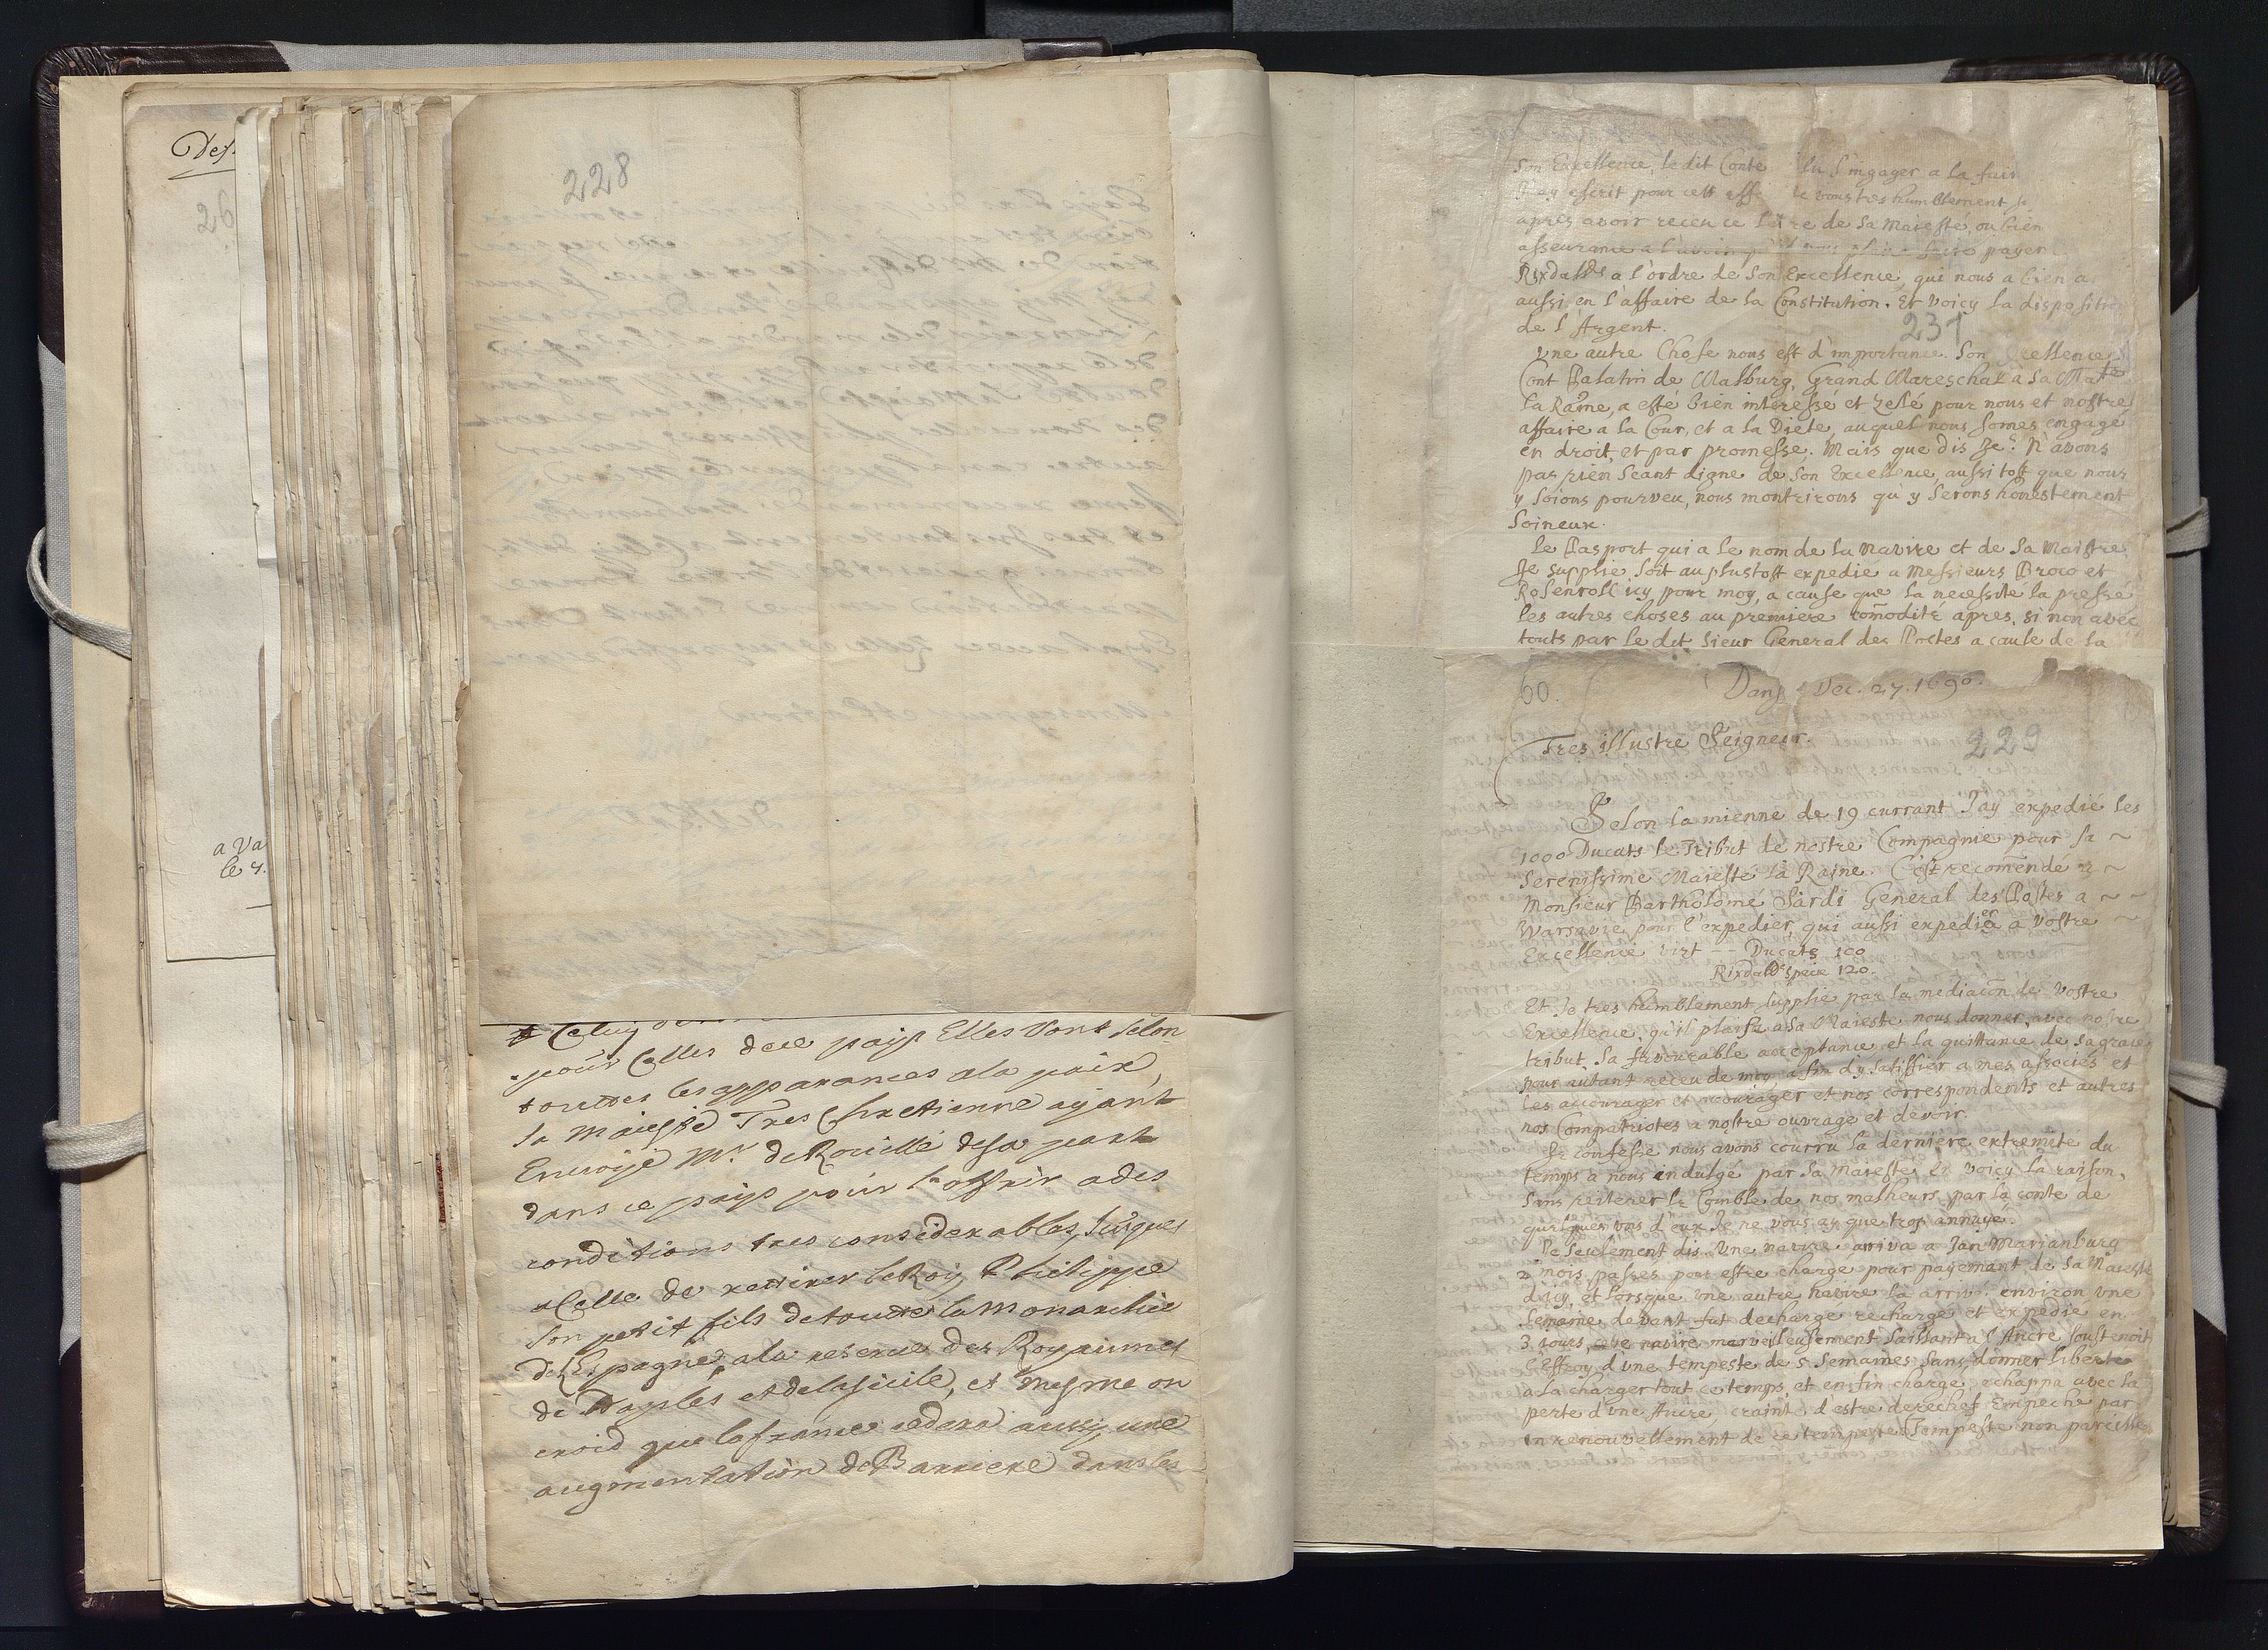 Des
26
a Va
le 4.
228
a Celuy
pour Celles de ce païs Elles Vont selon
touttes les apparances a la paix,
sa Maiesté Tres Chrestienne ayant
Envoyé Mr. de Rouillé de sa part
dans ce païs pour l'offrir a des
conditions tres considerables, Jusques
a Celle de rettirer le Roy Philippe
son petit fils de toutte la Monarchie
de l'Espagne, a la reserve des Royaumes
de Naples et de la sicile, et mesme on
croid que la france cedera aussy une
augmentation de Barriere dans les
Son Excellence, le dit Conte s'ingager a la
J'ay escrit pour cett vous tres humblement
apres avoir receu ce de sa Maiesté, ou bien
asseurance payer
Rixdalds a l'ordre de Son Excellence, qui nous a bien
aussi en l'affaire de la Constitution. Et voicy la disposition
de l'Argent.
231
Une autre Chose nous est d'importance. Son Excellence
Cont Palatin de Malburg, Grand Mareschal a Sa Mate
la Raine, a esté bien interessé et zelé pour nous et nostre
affaire a la Cour, et a la Diete, auquel nous somes engagé
en droit, et par promesse. Mais que dis Je? N'avons
pas rien seant digne de Son Excellence, aussi tost que nous
y soions pourveu, nous montrirons qu'y serons honestement
soineux.
Le Pasport qui a le nom de la navire et de sa Maistre
Je supplie soit au plustost expedié a Messieurs Brow et
Rosenroll icy pour moy, a cause que la necessité la presse
les autres choses au premiere comodité apres, si non avec
touts par le dit Sieur General des Postes a cause de la
60.
Dans. Dec. 27. 1690.
Tres illustre Seigneur.
229
Selon la mienne de 19 currant J'ay expedié les
1000 Ducats le Tribut de nostre Compagnie pour sa ~
Serenissime Maiesté la Raine. C'est recomendé a ~
Monsieur Bartholomé Sardi General des Postes a ~ ~
Warsavie pour l'expedier qui aussi expediera a Vostre ~
Excellence vizt -- Ducats 100
Rixdalds specie 120.
Et Je tres humblement supplie par la mediaçon de Vostre
Excellence, qu'il plaise a Sa Maiesté nous donner, avec nostre
tribut, sa favourable acceptance, et la quittance de sa grace
pour autant receu de moy, a fin d'y satisfier a mes associés et
les accourager et encourager et nos correspondents et autres
nos Compatriotes a nostre ouvrage et devoir.
Je confesse nous avons courru la derniere extremité du
temps a nous indulgé par sa Maiesté, Et voicy la raison,
Sans reiterer le Comble de nos malheurs par la conte de
quelques uns d'eux Je ne vous ay que trop annuyé.
Je seulement dis Une navire arriva a Jan Marianburg
2 mois passés pour estre chargé pour payemant de Sa Maiesté
d'icy, et lorsque une autre navire la arrivé environ une
Semaine devant fut dechargé rechargé et expedié en
3 jours, cette navire merveilleusement laissant a l'Ancre soustenoit
l'Effroy d'une tempeste de 5 Semaines, sans donner liberté
a la charger tout ce temps, et en fin chargé, echappa avec la
perte d'une Ancre, craint d'estre derechef Empeché par
un renouvellement de ce tempeste. Tempeste non pareille